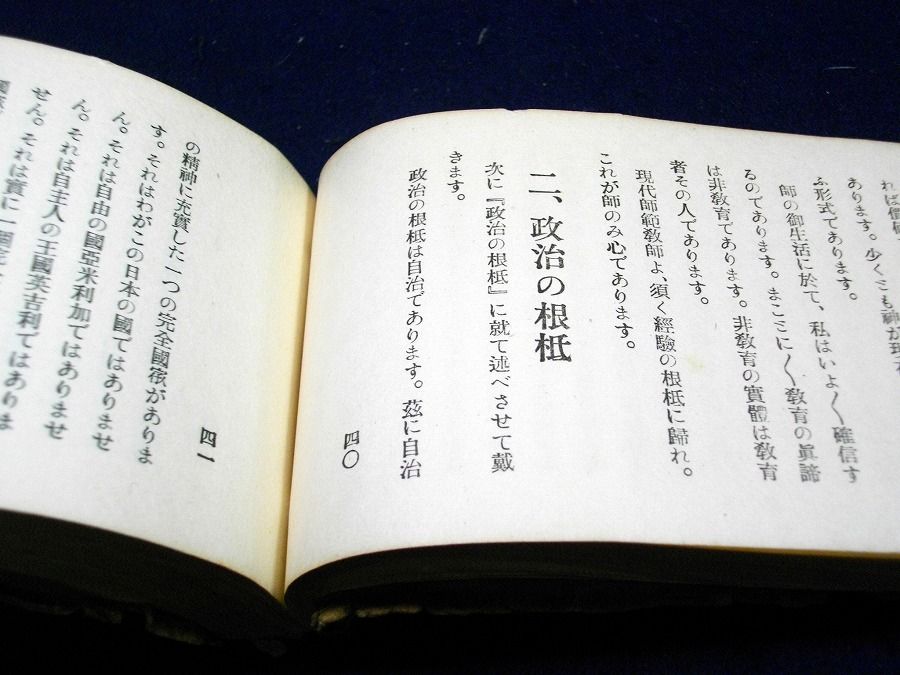 あります。少くとも神が
ふ形式であります。
師の御生活に於て、私はいよ〱確信す
るのであります。まことに〱教育の眞諦
は非教育であります。非教育の實體は教育
者その人であります。
現代師範教師よ、須く經驗の根柢に歸れ。
これが師のみ心であります。
二、政治の根柢
次に『政治の根柢』に就て述べさせて戴
きます。
政治の根柢は自治であります。茲に自治
四〇
の精神に充實した一つの完全國家がありま
す。それはわがこの日本の國ではありませ
ん。それは自由の國亞米利加ではありませ
ん。それは自主人の王國英吉利ではありま
せん。それは實に一個
四一